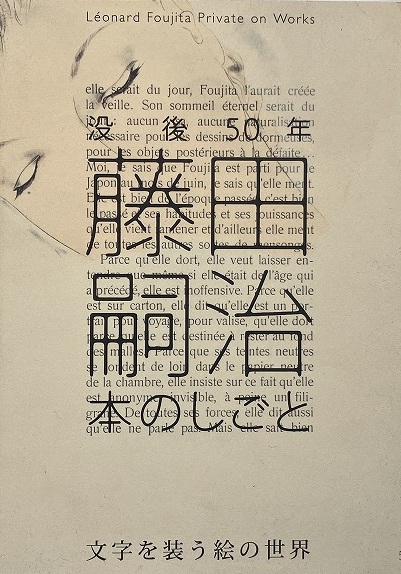 Léonard Foujita Private on Works
elle serait du jour, Foujita l'aurait créée
la veille. Son sommeil éternel serait du
jour : aucun aucun
没後50年
nécessaire pour les dessins de dormeuses,
pour les objets postérieurs à la défaite…
Moi, je sais que Foujita est parti pour le
Japon au mois de juin, je sais qu'elle ment.
Elle est bien de l'époque passée, c'est bien
le passé et ses habitudes et ses puissances
qu'elle vient ramener et d'ailleurs elle ment
de toutes les autres sortes de mensonges.
藤田
Parce qu'elle dort, elle veut laisser en-
tendre que même si elle était de l'âge qui
a précédé, elle est inoffensive. Parce qu'elle
est sur carton, elle dit qu'elle est un por-
trait pour voyage, pour valise, qu'elle dort
parce qu'elle est destinée à rester au fond
des malles. Parce que ses teintes neutres
se fondent de loin dans le papier neutre
嗣治
de la chambre, elle insiste sur ce fait qu'elle
est anonyme, invisible, à peine un fili-
grane. De toutes ses forces, elle dit aussi
qu'elle ne parle pas. Mais elle sait bien
本のしごと
文字を装う絵の世界